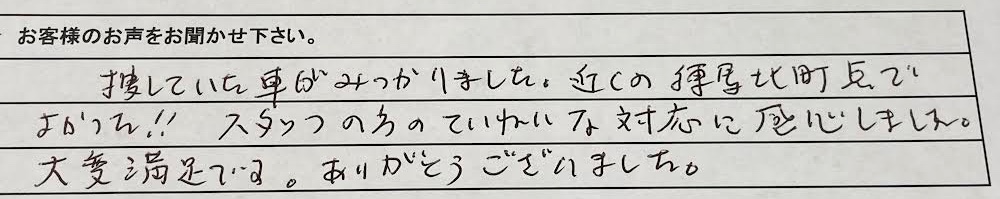 お客様のお声をお聞かせ下さい。
捜していた車がみつかりました。近くの練屋北町店で
よかった!! スタッフの方のていねいな対応に感心しました。
大変満足です。ありがとうございました。